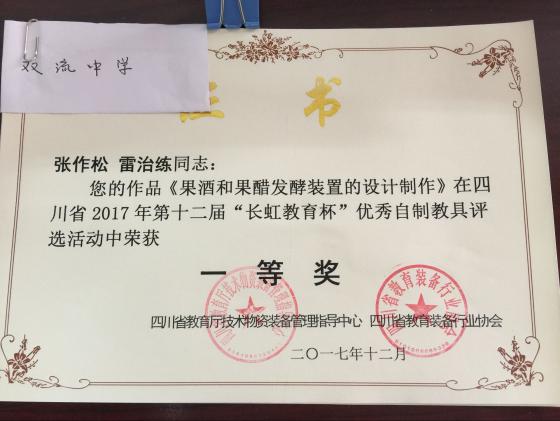 双流中学
证书
张作松 雷治练同志：
您的作品《果酒和果醋发酵装置的设计制作》在四
川省2017年第十二届“长虹教育杯”优秀自制教具评
选活动中荣获
一等奖
四川省教育厅技术物资装备管理指导中心 四川省教育装备行业协会
二〇一七年十二月
四川省教育装备行业协会